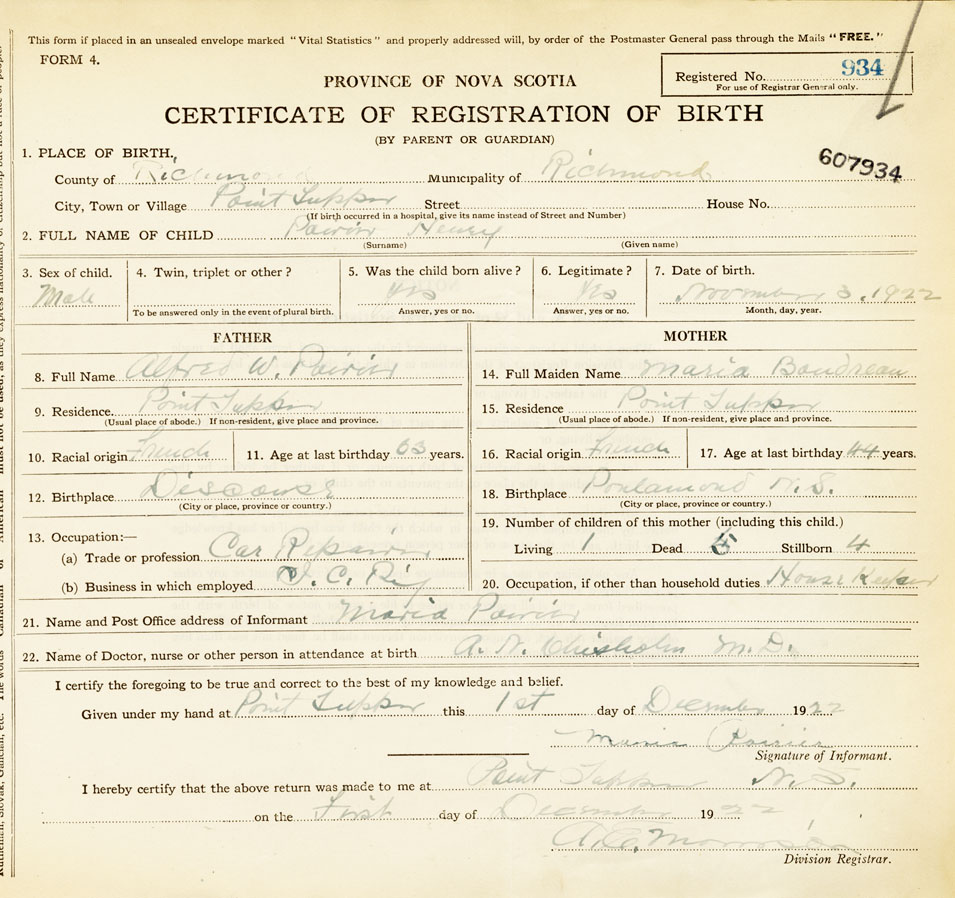 This form if placed in an unsealed envelope marked "Vital Statistics" and properly addressed will, by order of the Postmaster General pass through the Mails "FREE."
FORM 4.
Registered No. 934
For use of Registrar General only.
PROVINCE OF NOVA SCOTIA
CERTIFICATE OF REGISTRATION OF BIRTH
(BY PARENT OR GUARDIAN)
607934
1. PLACE OF BIRTH.
County of Richmond Municipality of Richmond
City, Town or Village Point Tupper Street House No.
(If birth occurred in a hospital, give its name instead of Street and Number)
2. FULL NAME OF CHILD Poirier Henry
(Surname) (Given name)
3. Sex of child. 4. Twin, triplet or other? 5. Was the child born alive? 6. Legitimate? 7. Date of birth.
Male yes Yes November 3, 1922
To be answered only in the event of plural birth. Answer, yes or no. Answer, yes or no. Month, day, year.
FATHER
8. Full Name Alfred W. Poirier
9. Residence. Point Tupper
(Usual place of abode.) If non-resident, give place and province.
10. Racial origin French 11. Age at last birthday 63 years.
12. Birthplace Descouse
(City or place, province or country.)
13. Occupation:—
(a) Trade or profession Car Repairer
(b) Business in which employed
MOTHER
14. Full Maiden Name Maria Boudreau
15. Residence Point Tupper
(Usual place of abode.) If non-resident, give place and province.
16. Racial origin French 17. Age at last birthday 44 years.
18. Birthplace Poulamond N.S.
(City or place, province or country.)
19. Number of children of this mother (including this child.)
Living 1 Dead 5 Stillborn 4
20. Occupation, if other than household duties House Keeper
21. Name and Post Office address of Informant Maria Poirier
22. Name of Doctor, nurse or other person in attendance at birth A. N. Chisholm M.D.
I certify the foregoing to be true and correct to the best of my knowledge and belief.
Given under my hand at Point Tupper this 1st day of December 1922
Maria Poirier
Signature of Informant.
I hereby certify that the above return was made to me at Point Tupper N.S.
on the First day of December 1922
A. C. Morrison
Division Registrar.